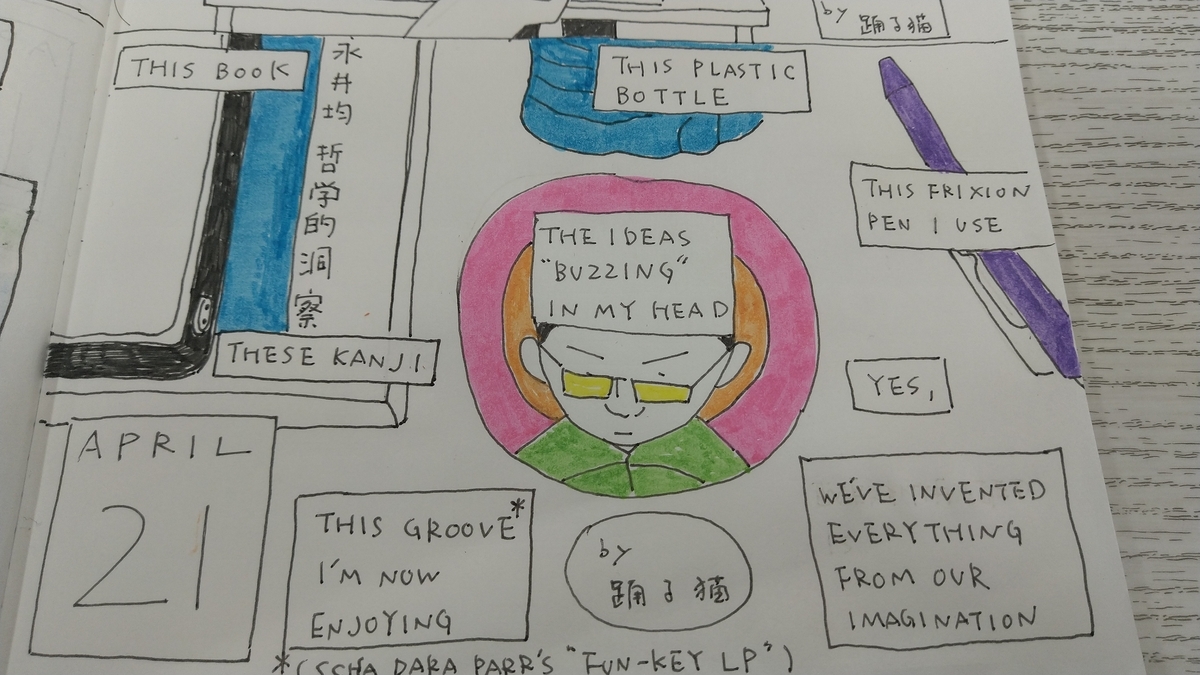 by
踊る猫
THIS BOOK
永井均 哲学的洞察
THESE KANJI
THIS PLASTIC
BOTTLE
THIS FRIXION
PEN I USE
THE IDEAS
"BUZZING"
IN MY HEAD
YES,
APRIL
21
THIS GROOVE*
I'M NOW
ENJOYING
by
踊る猫
WE'VE INVENTED
EVERYTHING
FROM OUR
IMAGINATION
*(SCHA DARA PARR'S "FUN-KEY LP")